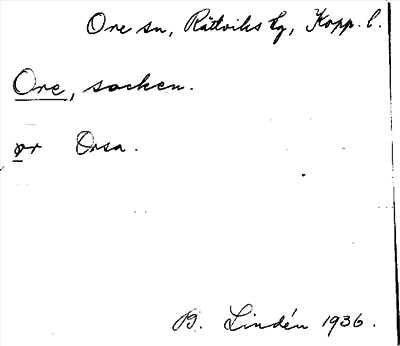 Ore sn, Rättviks tg, Kopp. l.
Ore, socken.
or Orsa.
B. Lindén 1936.